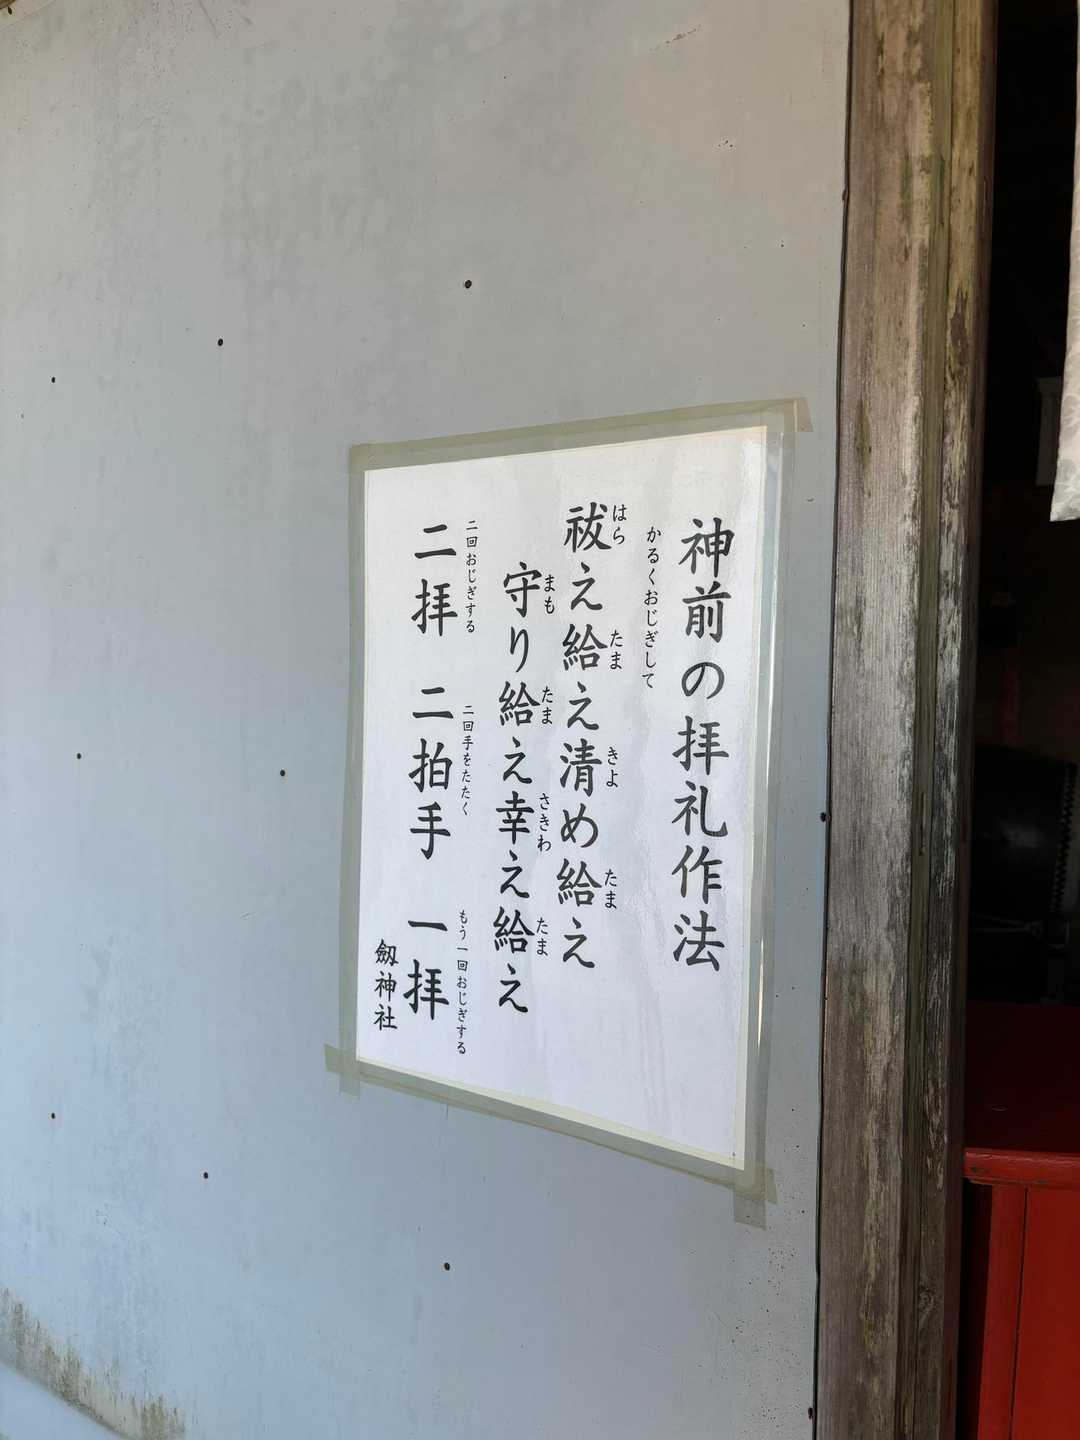 神前の拝礼作法
かるくおじぎして
はら たま きよ たま
祓え給え清め給え
まも たま さきわ たま
守り給え幸え給え
二回おじぎする 二回手をたたく もう一回おじぎする
二拝 二拍手 一拝
劔神社